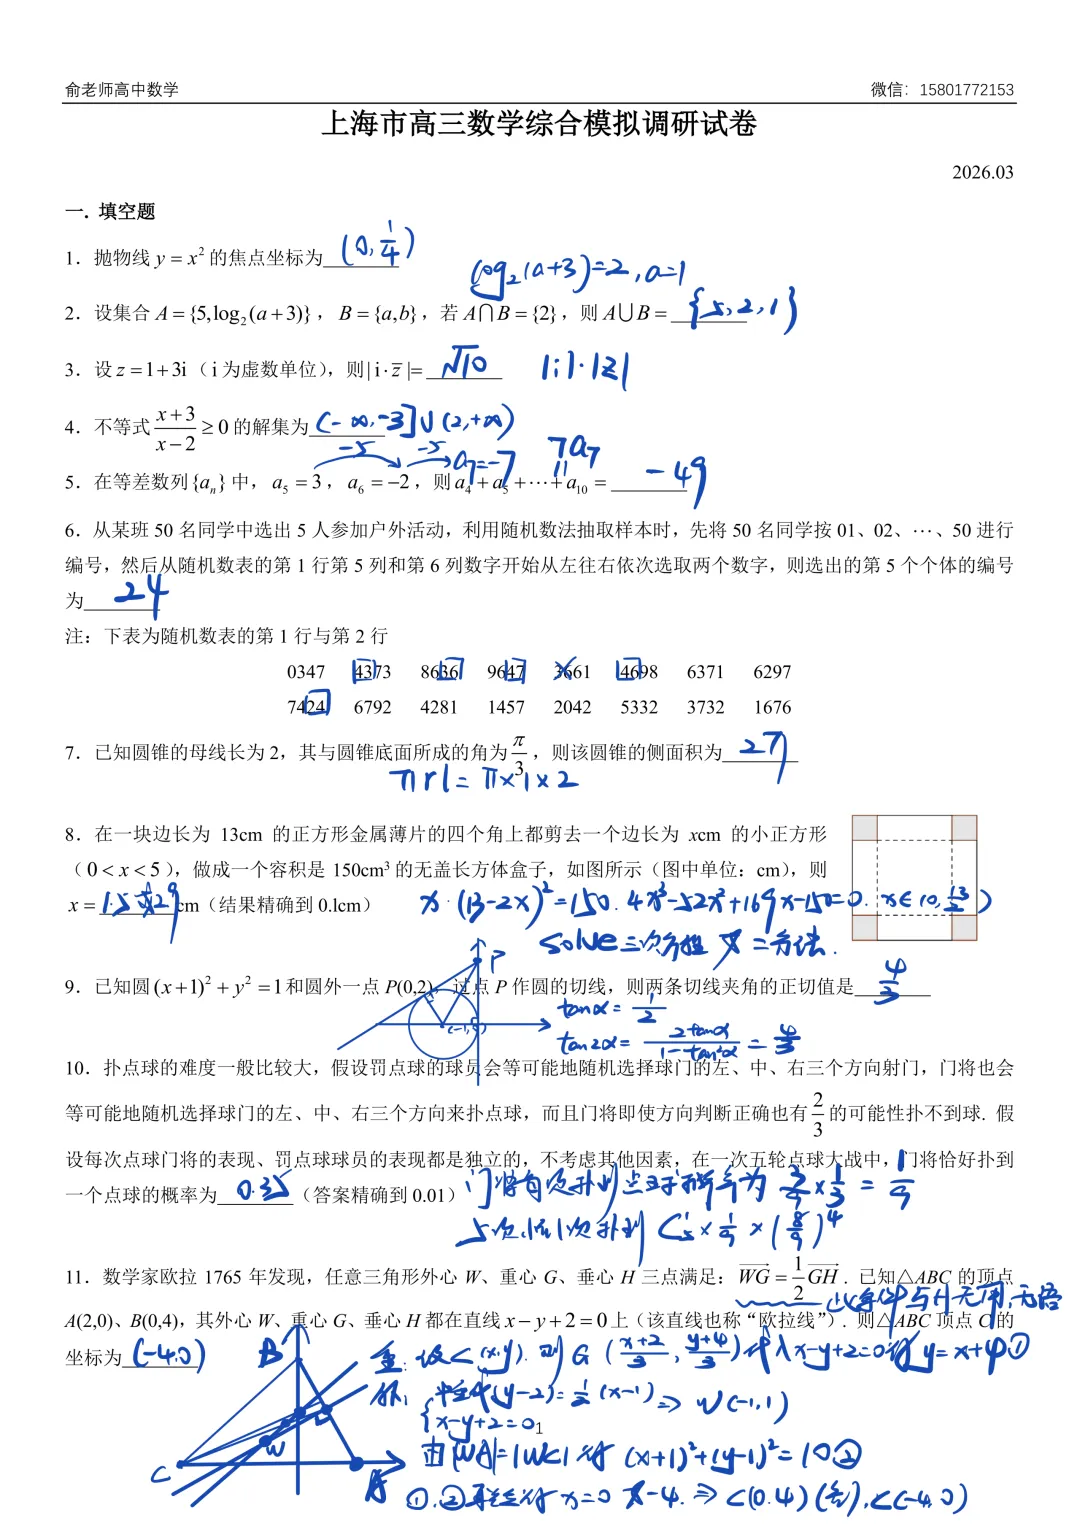 俞老师高中数学 微信：15801772153
上海市高三数学综合模拟调研试卷
2026.03
一. 填空题
1．抛物线 y = x² 的焦点坐标为 (0, 1/4)
log₂(a+3)=2, a=1
2．设集合 A = {5, log₂(a + 3)}，B = {a, b}，若 A∩B = {2}，则 A∪B = {5, 2, 1}
3．设 z = 1 + 3i（i 为虚数单位），则 | i · z̄ | = √10 |i|·|z|
4．不等式 (x+3)/(x−2) ≥ 0 的解集为 (-∞, -3]∪(2, +∞)
-5 -5 a₇=-7 7a₇
5．在等差数列 {aₙ} 中，a₅ = 3，a₆ = −2，则 a₄ + a₅ + ⋯ + a₁₀ = -49
6．从某班 50 名同学中选出 5 人参加户外活动，利用随机数法抽取样本时，先将 50 名同学按 01、02、⋯、50 进行
编号，然后从随机数表的第 1 行第 5 列和第 6 列数字开始从左往右依次选取两个数字，则选出的第 5 个个体的编号
为 24
注：下表为随机数表的第 1 行与第 2 行
0347 4373 8636 9647 3661 4698 6371 6297
7424 6792 4281 1457 2042 5332 3732 1676
7．已知圆锥的母线长为 2，其与圆锥底面所成的角为 π/3，则该圆锥的侧面积为 2π
πrl = π×1×2
8．在一块边长为 13cm 的正方形金属薄片的四个角上都剪去一个边长为 xcm 的小正方形
（0 < x < 5），做成一个容积是 150cm³ 的无盖长方体盒子，如图所示（图中单位：cm），则
x = 1.5或2.9 cm（结果精确到 0.1cm） x·(13-2x)²=150. 4x³-52x²+169x-150=0. x∈(0, 13/2)
solve 三次方程 又 二分法.
9．已知圆 (x+1)² + y² = 1 和圆外一点 P(0,2)，过点 P 作圆的切线，则两条切线夹角的正切值是 4/3
P
(-1,0)
tanα = 1/2
tan2α = 2tanα/(1-tan²α) = 4/3
10．扑点球的难度一般比较大，假设罚点球的球员会等可能地随机选择球门的左、中、右三个方向射门，门将也会
等可能地随机选择球门的左、中、右三个方向来扑点球，而且门将即使方向判断正确也有 2/3 的可能性扑不到球. 假
设每次点球门将的表现、罚点球球员的表现都是独立的，不考虑其他因素，在一次五轮点球大战中，门将恰好扑到
一个点球的概率为 0.35（答案精确到 0.01） 门将每次扑到点球概率为 3/9 × 1/3 = 1/9
5次,恰1次扑到 C₅¹ × 1/9 × (8/9)⁴
11．数学家欧拉 1765 年发现，任意三角形外心 W、重心 G、垂心 H 三点满足：WG = 1/2 GH．已知△ABC 的顶点
A(2,0)、B(0,4)，其外心 W、重心 G、垂心 H 都在直线 x − y + 2 = 0 上（该直线也称“欧拉线”）. 则△ABC 顶点 C 的
坐标为 (-4,0)
B
重: 设C(x,y). 则G((x+2)/3, (y+4)/3) 代入x-y+2=0得 y=x+4 ①
外: {中垂线(y-2)=1/2(x-1) ⇒ W(-1,1)
x-y+2=0
由|WA|=|WC|得 (x+1)²+(y-1)²=10 ②
①,②联立得 x=0 又-4. ⇒ C(0,4)(舍), C(-4,0)
W
C
A
1